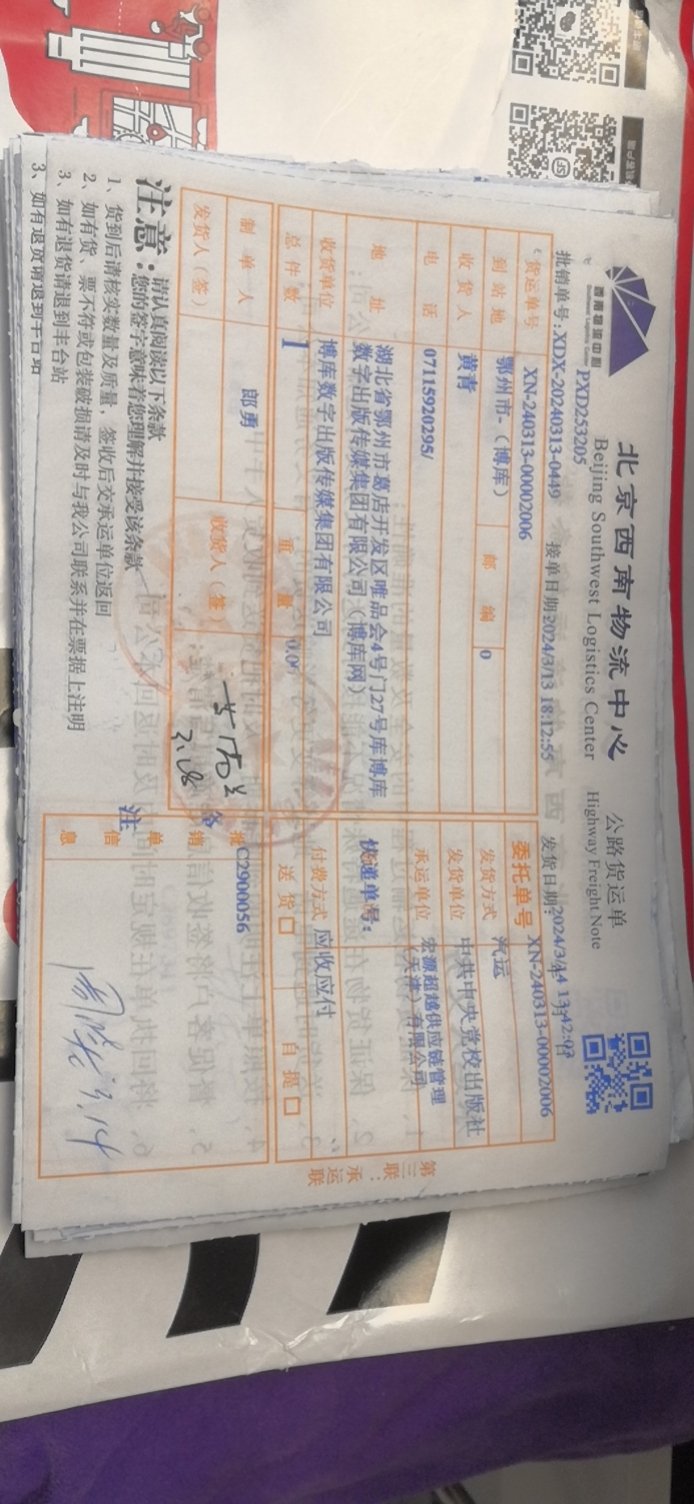 北京西南物流中心
公路货运单
Beijing Southwest Logistics Center
Highway Freight Note
西南物流中心
PXD253205
批销单号:XDX-20240313-0449
接单日期:2024/3/13 18:12:55
发货日期:2024/3/14 13:42:03
货运单号 XN-240313-00002006
委托单号 XN-240313-00002006
到站地 鄂州市-（博库）
邮编 0
发货方式 汽运
收货人 黄青
发货单位 中共中央党校出版社
电话 07115920295/
承运单位 宏源超越供应链管理
（天津）有限公司
地址 湖北省鄂州市葛店开发区唯品会4号门27号库博库
数字出版传媒集团有限公司（博库网）
快递单号:
收货单位 博库数字出版传媒集团有限公司
付费方式 应收应付
总件数 1
重量
送货□ 自提□
制单人 邱勇
收货人（签）
发货人（签）
3.18
备注
批销单信息
C2900056
3.14
第三联：承运联
注意：
请认真阅读以下条款
您的签字意味着您理解并接受该条款
1、货到后请核实数量及质量，签收后交承运单位返回
2、如有货、票不符或包装破损请及时与我公司联系并在票据上注明
3、如有退货请退到丰台站
3、如有退货请退到丰台站